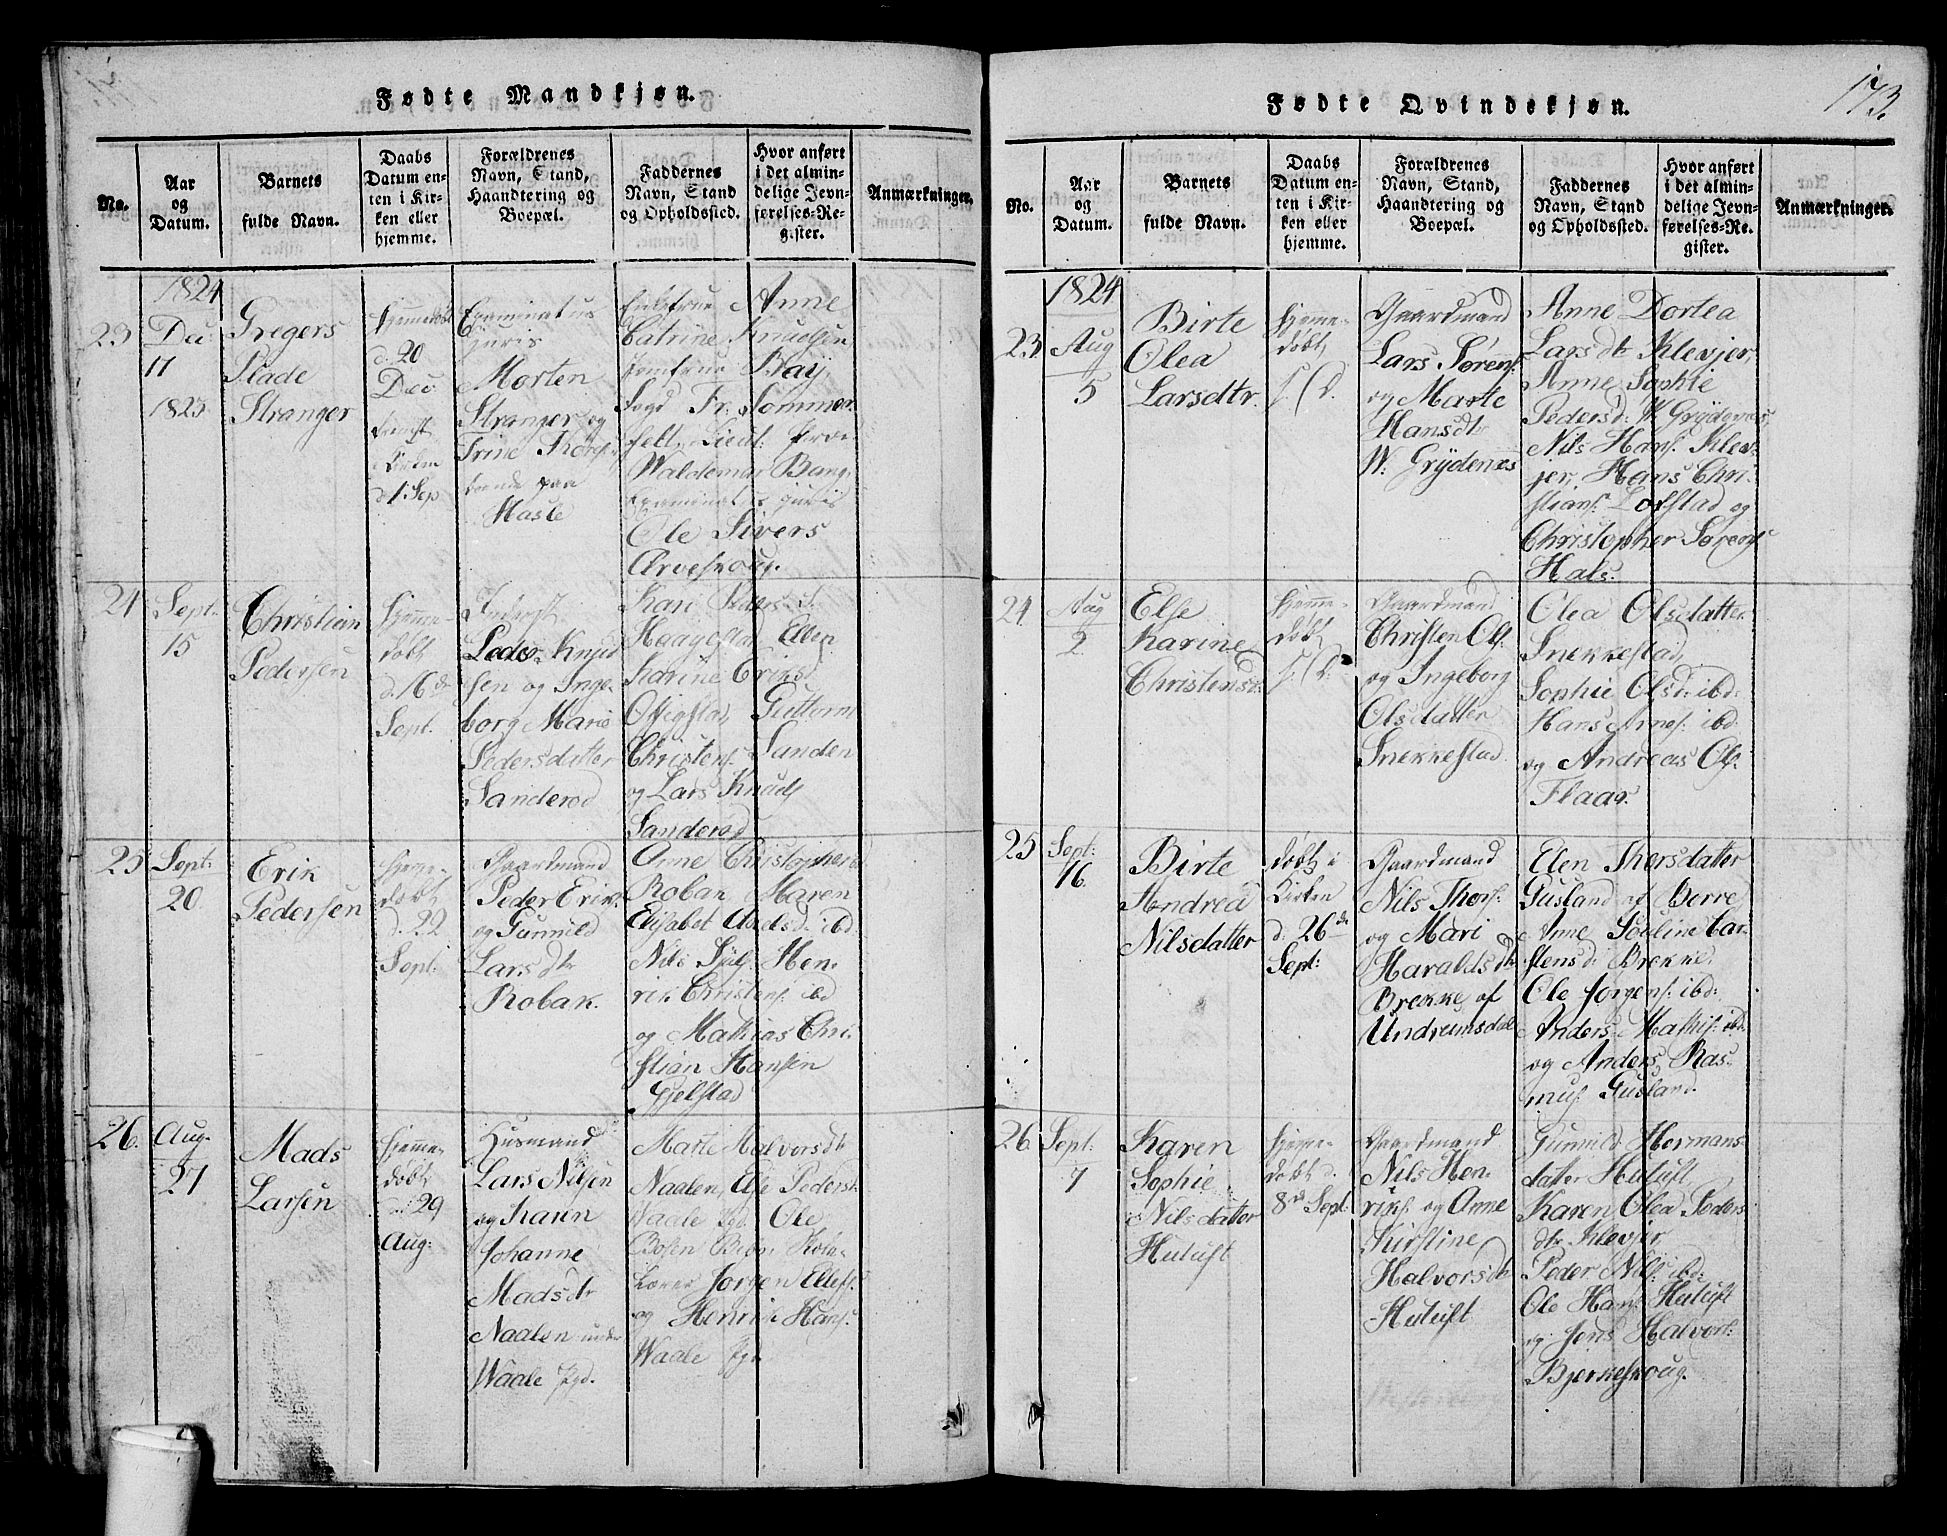 Fødte Mandkjøn.
No.
Aar
og
Datum.
Barnets
fulde Navn.
Daabs
Datum en-
ten i Kir-
ken eller
hjemme.
Forældrenes
Navn, Stand,
Haandtering og
Boepæl.
Faddernes
Navn, Stand
og Opholdssted.
Hvor anført
i det almin-
delige Jevn-
førelses-Re-
gister.
Anmærkninger.
23
1824
Dec
11
1823
Gregers
Stade
Stranger
Hjemedøbt
d. 20
Dec
Kirken
d 1 Sep
Examinatus
Juris
Morten
Stranger og
Trine
paa
Hasle
Enkefrue Anne
Catrine Knudsen
Jomfrue Bay,
Fogd Fr. Sommer
felt, Lieut:
Waldemar Bang,
Examinatus juris
Ole Sivers
Arveskoug.
24
Sept:
15
Christian
Pedersen
Hjemme-
døbt
d. 16de
Sept.
Inderst
Peder Knud
sen og Inge-
borg Marie
Pedersdatter
Sanderød
Kari Peders d.
Haagestad, Ellen
Karine Eriksd
Guttorm
Christens. Sanden
og Lars Knuds
Sanderød
25
Sept:
20
Erik
Pedersen
Hjeme-
døbt
d. 22
Sept:
Gaardmand
Peder Erik.
og Gunnild
Lars dtr
Robak.
Anne Christophers
Robak, Maren
Elisabet d. ibd
Nils Hen-
rik Christens. ibd
og Mathias Chri-
stian Hansen
Gjelstad
26.
Aug.
27
Mads
Larsen
Hjemme-
døbt
29
Aug:
Husmand
Lars Nilsen
og Karen
Johanne
Mads dtr
Naalen under
Waale Pgd.
Marte Halvorsdtr
Naalen, Else Peders
Waale Pgd. Ole
Jørgen Ellefs.
og Henrik Hans.
Waale Pgd.
Fødte Qvindekjøn.
173.
No.
Aar
og
Datum.
Barnets
fulde Navn.
Daabs
Datum en-
ten i Kir-
ken eller
hjemme.
Forældrenes
Navn, Stand,
Haandtering og
Boepæl.
Faddernes
Navn, Stand
og Opholdssted.
Hvor anført
i det almin-
delige Jevn-
førelses-Re-
gister.
Anmærkninger.
23
1824
Aug
5
Birte
Olea
Larsdtr.
Hjeme-
døbt
s. D.
Gaardmand
Lars Sørens.
og Marte
Hansdtr
W: Grydenes
Anne Dortea
Larsdtr Klevjer,
Anne Sophie
Peders d. W Grydenes,
Nils Hans. Klev-
jer, Hans Chri-
stians. Lofstad og
Christopher Sørens
Hals.
24
Aug
2
Else
Karine
Christensd
Hjemme-
døbt
s. D.
Gaardmand
Christen Ols.
og Ingeborg
Olsdatter
Snekkestad
Olea Olsdatter
Snekkestad,
Sophie Olsd: ibd:
Hans Arnes. ibd.
og Andreas Ols:
Flaag.
25
Sept:
16.
Birte
Andrea
Nilsdatter
Døbt i
Kirken
d. 26de
Sept:
Gaardmand
Nils Thors.
og Mari
Haralds dtr
Brekke af
Undrumsdal
Elen Iversdatter
Gusland af Borre
Anne Pouline Car-
stensd: Brekke.
Ole Jørgens. ibd:
Anders Mathis. ibd.
og Anders Ras-
mus. Gusland.
26
Sept:
7
Karen
Sophie
Nilsdatter
Hutuft
Hjeme-
døbt d.
8de Sept:
Gaardmand
Nils Hen-
riks. og Anne
Kirstine
Halvorsdtr
Hutuft
Gunnild Hermans
datter Hutuft
Karen Olea Peders
dtr Klevjer
Peder Nils. ibd:
Ole Hans. Hutuft
og Jens Halvors.
Bjerkeskoug.